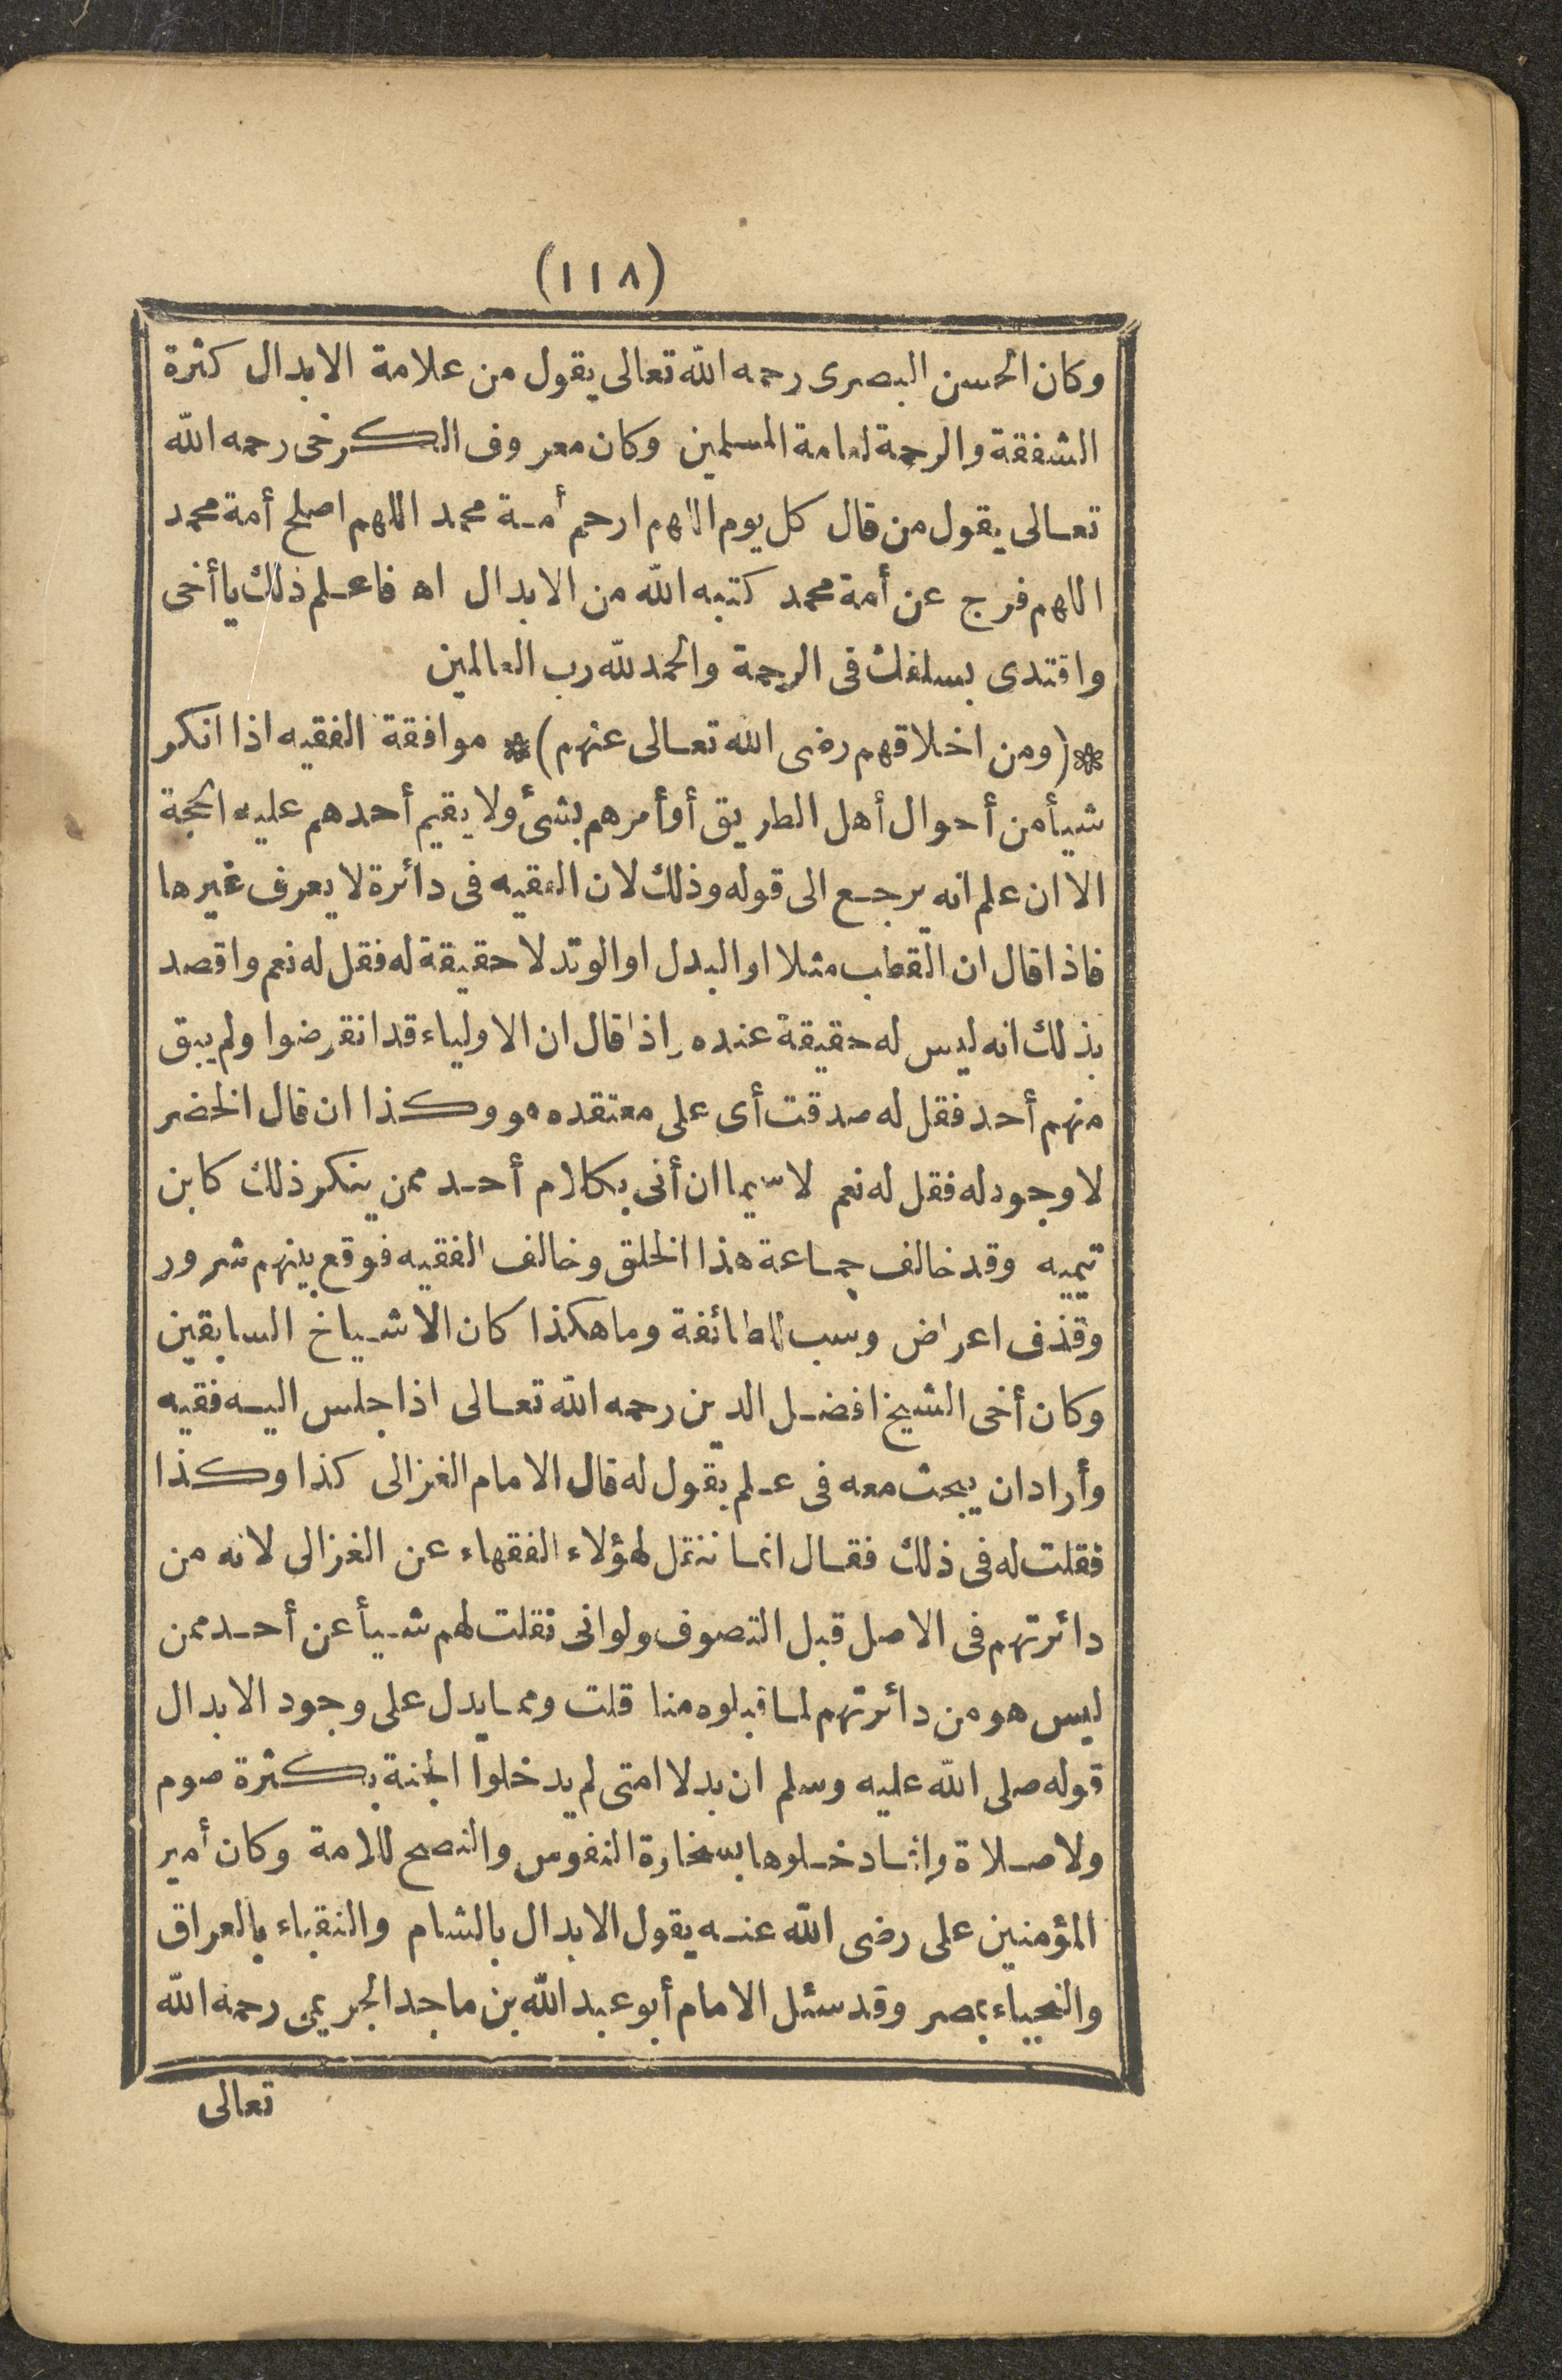 (١١٨)
وكان الحسن البصرى رحمه الله تعالى يقول من علامة الابدال كثرة
الشفقة والرحمة لعامة المسلمين وكان معروف الكرخى رحمه الله
تعالى يقول من قال كل يوم اللهم ارحم أمة محمد اللهم اصلح أمة محمد
اللهم فرج عن أمة محمد كتبه الله من الابدال اه فاعلم ذلك يا أخى
واقتدى بسلفك فى الرحمة والحمد لله رب العالمين
* (ومن اخلاقهم رضى الله تعالى عنهم) * موافقة الفقيه اذا انكر
شيأ من أحوال أهل الطريق أو أمرهم بشئ ولا يقيم أحدهم عليه الحجة
الا ان علم انه يرجع الى قوله وذلك لان الفقيه فى دائرة لا يعرف غيرها
فاذا قال ان القطب مثلا او البدل او الوتد لا حقيقة له فقل له نعم واقصد
بذلك انه ليس له حقيقة عنده واذا قال ان الاولياء قد انقرضوا ولم يبق
منهم أحد فقل له صدقت أى على معتقده هو وكذا ان قال الخضر
لا وجود له فقل له نعم لا سيما ان أتى بكلام أحد ممن ينكر ذلك كابن
تيميه وقد خالف جماعة هذا الخلق وخالف الفقيه فوقع بينهم شرور
وقذف اعراض وسب للطائفة وما هكذا كان الاشياخ السابقين
وكان أخى الشيخ افضل الدين رحمه الله تعالى اذا جلس اليه فقيه
وأراد ان يبحث معه فى علم يقول له قال الامام الغزالى كذا وكذا
فقلت له فى ذلك فقال انما ننقل لهؤلاء الفقهاء عن الغزالى لانه من
دائرتهم فى الاصل قبل التصوف ولو انى نقلت لهم شيأ عن أحد ممن
ليس هو من دائرتهم لما قبلوه منا قلت ومما يدل على وجود الابدال
قوله صلى الله عليه وسلم ان بدلا امتى لم يدخلوا الجنة بكثرة صوم
ولا صلاة وانما دخلوها بسخاوة النفوس والنصح للامة وكان أمير
المؤمنين على رضى الله عنه يقول الابدال بالشام والنقباء بالعراق
والنجباء بمصر وقد سئل الامام أبو عبد الله بن ماجد الجريمى رحمه الله
تعالى